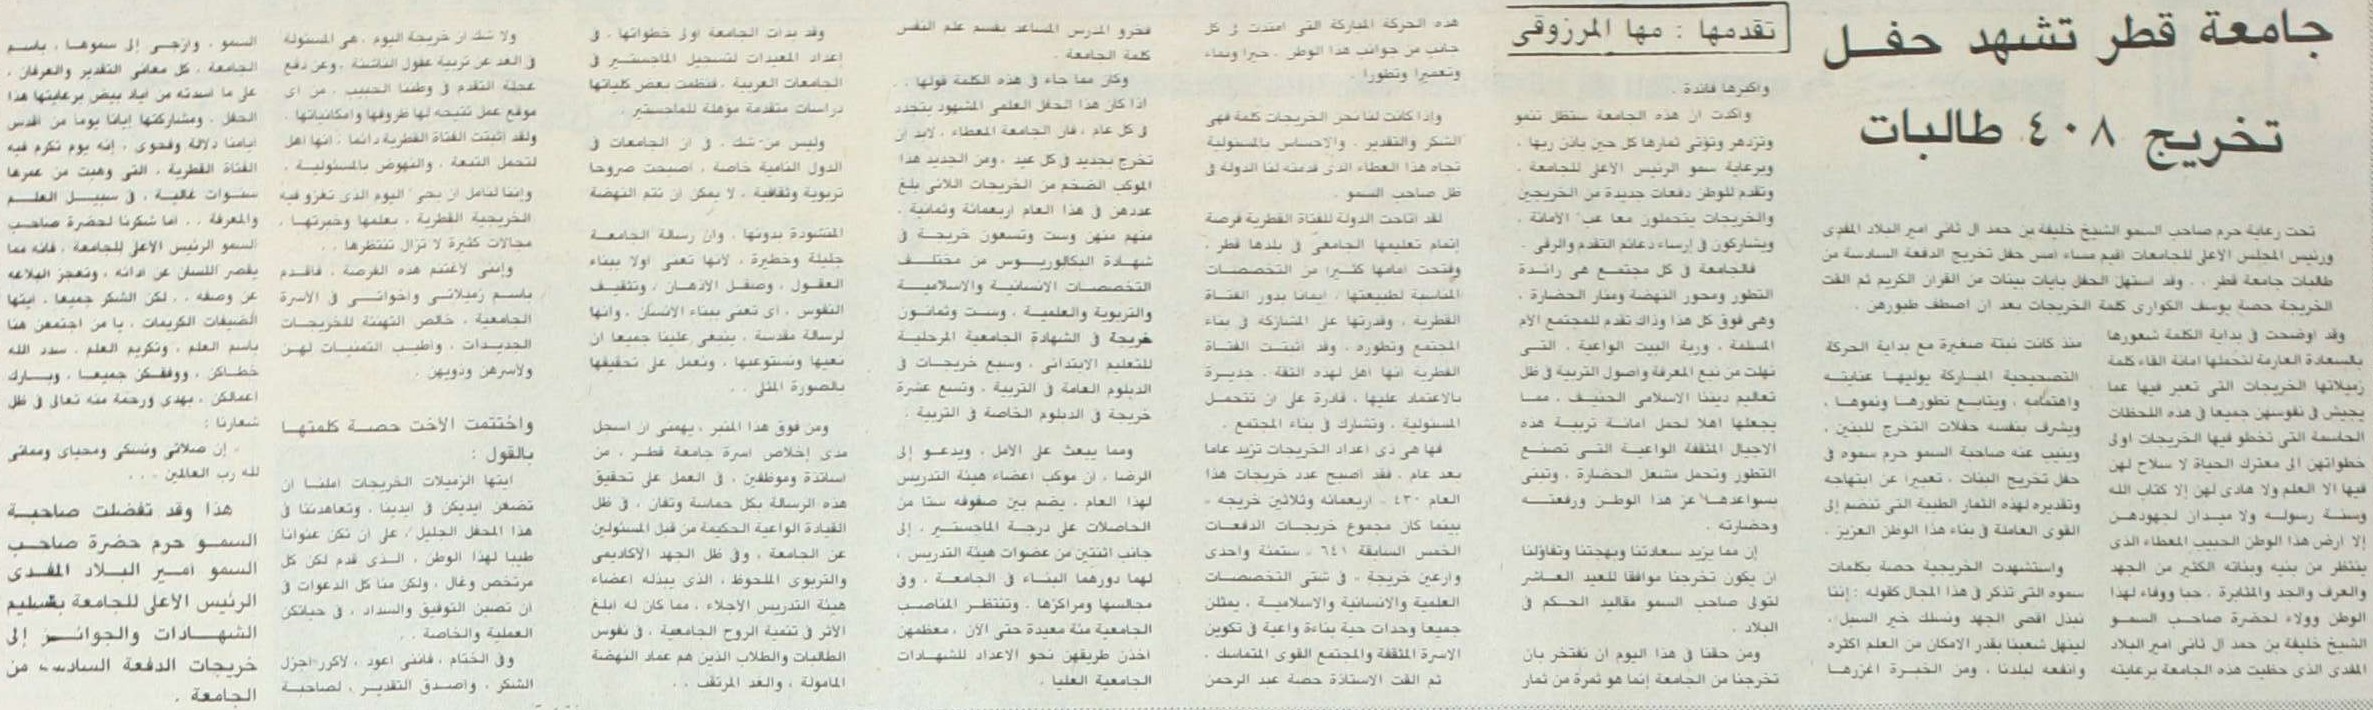 جامعة قطر تشهد حفل
تخريج ٤٠٨ طالبات
تقدمها : مها المرزوقى
تحت رعاية حرم صاحب السمو الشيخ خليفة بن حمد ال ثانى امير البلاد المفدى
ورئيس المجلس الأعلى للجامعات اقيم مساء امس حفل تخريج الدفعة السادسة من
طالبات جامعة قطر . . وقد استهل الحفل بايات بينات من القران الكريم ثم القت
الخريجة حصة يوسف الكوارى كلمة الخريجات بعد ان اصطف طبورهن .
وقد اوضحت فى بداية الكلمة شعورها
بالسعادة العارمة لتحملها امانة القاء كلمة
زميلاتها الخريجات التى تعبر فيها عما
يجيش فى نفوسهن جميعا فى هذه اللحظات
الحاسمة التى تخطو فيها الخريجات اولى
خطواتهن الى معترك الحياة لا سلاح لهن
فيها الا العلم ولا هادى لهن إلا كتاب الله
وسنة رسوله ولا ميدان لجهودهن
إلا ارض هذا الوطن الحبيب المعطاء الذى
ينتظر من بنيه وبناته الكثير من الجهد
والعرف والجد والمثابرة . حبا ووفاء لهذا
الوطن وولاء لحضرة صاحب السمو
الشيخ خليفة بن حمد ال ثانى امير البلاد
المفدى الذى حظيت هذه الجامعة برعايته
منذ كانت نبتة صغيرة مع بداية الحركة
التصحيحية المباركة يوليها عنايته
واهتمامه . ويتابع تطورها ونموها .
ويشرف بنفسه حفلات التخرج للبنين .
وينيب عنه صاحبة السمو حرم سموه فى
حفل تخريج البنات . تعبيرا عن ابتهاجه
وتقديره لهذه الثمار الطيبة التى تنضم إلى
القوى العاملة فى بناء هذا الوطن العزيز .
واستشهدت الخريجية حصة بكلمات
سموه التى تذكر فى هذا المجال كقوله : إننا
نبذل اقصى الجهد ونسلك خير السبل .
لينهل شعبنا بقدر الامكان من العلم اكثره
وانفعه لبلدنا . ومن الخبرة اغزرها
واكبرها فائدة .
واكدت ان هذه الجامعة ستظل تنمو
وتزدهر وتؤتى ثمارها كل حين باذن ربها .
وبرعاية سمو الرئيس الأعلى للجامعة .
وتقدم للوطن دفعات جديدة من الخريجين
والخريجات يتحملون معا عبء الأمانة .
ويشاركون فى إرساء دعائم التقدم والرقى .
فالجامعة فى كل مجتمع هى رائدة
التطور ومحور النهضة ومنار الحضارة .
وهى فوق كل هذا وذاك تقدم للمجتمع الأم
المسلمة . وربة البيت الواعية . التى
نهلت من نبع المعرفة واصول التربية فى ظل
تعاليم ديننا الاسلامى الحنيف . مما
يجعلها اهلا لحمل امانة تربية هذه
الاجيال المثقفة الواعية التى تصنع
التطور وتحمل مشعل الحضارة . وتبنى
بسواعدها عز هذا الوطن ورفعته
وحضارته .
إن مما يزيد سعادتنا وبهجتنا وتفاؤلنا
ان يكون تخرجنا موافقا للعيد العاشر
لتولى صاحب السمو مقاليد الحكم فى
البلاد .
ومن حقنا فى هذا اليوم ان نفتخر بان
تخرجنا من الجامعة إنما هو ثمرة من ثمار
هذه الحركة المباركة التى امتدت فى كل
جانب من جوانب هذا الوطن . خيرا وبناء
وتعميرا وتطورا .
وإذا كانت لنا نحن الخريجات كلمة فهى
الشكر والتقدير . والاحساس بالمسئولية
تجاه هذا العطاء الذى قدمته لنا الدولة فى
ظل صاحب السمو .
لقد اتاحت الدولة للفتاة القطرية فرصة
إتمام تعليمها الجامعى فى بلدها قطر .
وفتحت امامها كثيرا من التخصصات
المناسبة لطبيعتها . ايمانا بدور الفتاة
القطرية . وقدرتها على المشاركة فى بناء
المجتمع وتطوره . وقد اثبتت الفتاة
القطرية انها اهل لهذه الثقة . جديرة
بالاعتماد عليها . قادرة على ان تتحمل
المسئولية . وتشارك فى بناء المجتمع .
فها هى ذى اعداد الخريجات تزيد عاما
بعد عام . فقد اصبح عدد خريجات هذا
العام ٤٣٠ - اربعمائة وثلاثين خريجة -
بينما كان مجموع خريجات الدفعات
الخمس السابقة ٦٤١ - ستمئة واحدى
وارعين خريجة - فى شتى التخصصات
العلمية والانسانية والاسلامية . يمثلن
جميعا وحدات حية بناءة واعية فى تكوين
الاسرة المثقفة والمجتمع القوى المتماسك .
ثم القت الاستاذة حصة عبد الرحمن
فخرو المدرس المساعد بقسم علم النفس
كلمة الجامعة .
وكان مما جاء فى هذه الكلمة قولها . .
اذا كان هذا الحفل العلمى المشهود يتجدد
فى كل عام . فان الجامعة المعطاء . لابد ان
تخرج بجديد فى كل عيد . ومن الجديد هذا
الموكب الضخم من الخريجات اللائى بلغ
عددهن فى هذا العام اربعمائة وثمانية .
منهم منهن وست وتسعون خريجة فى
شهادة البكالوريوس من مختلف
التخصصات الانسانية والاسلامية
والتربوية والعلمية . وست وثمانون
خريجة فى الشهادة الجامعية المرحلية
للتعليم الابتدائى . وسبع خريجات فى
الدبلوم العامة فى التربية . وتسع عشرة
خريجة فى الدبلوم الخاصة فى التربية .
ومما يبعث على الامل . ويدعو إلى
الرضا . ان موكب اعضاء هيئة التدريس
لهذا العام . يضم بين صفوفه ستا من
الحاصلات على درجة الماجستير . إلى
جانب اثنتين من عضوات هيئة التدريس .
لهما دورهما البناء فى الجامعة . وفى
مجالسها ومراكزها . وتنتظر المناصب
الجامعية مئة معيدة حتى الان . معظمهن
اخذن طريقهن نحو الاعداد للشهادات
الجامعية العليا .
وقد بدات الجامعة اولى خطواتها . فى
إعداد المعيدات لتسجيل الماجستير فى
الجامعات العربية . فنظمت بعض كلياتها
دراسات متقدمة مؤهلة للماجستير .
وليس من شك . فى ان الجامعات فى
الدول النامية خاصة . اصبحت صروحا
تربوية وثقافية . لا يمكن ان تتم النهضة
المنشودة بدونها . وان رسالة الجامعة
جليلة وخطيرة . لانها تعنى اولا ببناء
العقول . وصقل الأذهان . وتثقيف
النفوس . اى تعنى ببناء الانسان . وانها
لرسالة مقدسة . ينبغى علينا جميعا ان
نعيها ونستوعبها . ونعمل على تحقيقها
بالصورة المثلى . .
ومن فوق هذا المنبر . يهمنى ان اسجل
مدى إخلاص اسرة جامعة قطر . من
اساتذة وموظفين . فى العمل على تحقيق
هذه الرسالة بكل حماسة وتفان . فى ظل
القيادة الواعية الحكيمة من قبل المسئولين
عن الجامعة . وفى ظل الجهد الأكاديمى
والتربوى الملحوظ . الذى يبذله اعضاء
هيئة التدريس الأجلاء . مما كان له ابلغ
الأثر فى تنمية الروح الجامعية . فى نفوس
الطالبات والطلاب الذين هم عماد النهضة
المامولة . والغد المرتقب . .
ولا شك ان خريجة اليوم . هى المسئولة
فى الغد عن تربية عقول الناشئة . وعن دفع
عجلة التقدم فى وطننا الحبيب . من اى
موقع عمل تتيحه لها ظروفها وامكانياتها .
ولقد اثبتت الفتاة القطرية دائما . انها اهل
لتحمل التبعة . والنهوض بالمسئولية .
وإننا لنامل ان يجىء اليوم الذى تغزو فيه
الخريجية القطرية . بعلمها وخبرتها .
مجالات كثيرة لا تزال تنتظرها . .
وإننى لأغتنم هذه الفرصة . فاقدم
باسم زميلاتى واخواتى فى الأسرة
الجامعية . خالص التهنئة للخريجات
الجديدات . واطيب التمنيات لهن
ولأسرهن وذويهن .
واختتمت الأخت حصة كلمتها
بالقول :
ايتها الزميلات الخريجات املنا ان
تضعن ايديكن فى ايدينا . وتعاهدننا فى
هذا المحفل الجليل . على ان تكن عنوانا
طيبا لهذا الوطن . الذى قدم لكن كل
مرتخص وغال . ولكن منا كل الدعوات فى
ان تصبن التوفيق والسداد . فى حياتكن
العملية والخاصة . .
وفى الختام . فاننى اعود . لاكرر اجزل
الشكر . واصدق التقدير . لصاحبة
السمو . وازجى إلى سموها . باسم
الجامعة . كل معانى التقدير والعرفان .
على ما اسدته من اياد بيض برعايتها هذا
الحفل . ومشاركتها إيانا يوما من اقدس
ايامنا دلالة وفحوى . إنه يوم تكرم فيه
الفتاة القطرية . التى وهبت من عمرها
سنوات غالية . فى سبيل العلم
والمعرفة . . اما شكرنا لحضرة صاحب
السمو الرئيس الأعلى للجامعة . فانه مما
يقصر اللسان عن ادائه . وتعجز البلاغة
عن وصفه . . لكن الشكر جميعا . ايتها
الضيفات الكريمات . يا من اجتمعن هنا
باسم العلم . وتكريم العلم . سدد الله
خطاكن . ووفقكن جميعا . وبارك
اعمالكن . بهدى ورحمة منه تعالى فى ظل
شعارنا :
- إن صلاتى ونسكى ومحياى ومماتى
لله رب العالمين . . .
هذا وقد تفضلت صاحبة
السمو حرم حضرة صاحب
السمو امير البلاد المفدى
الرئيس الأعلى للجامعة بتسليم
الشهادات والجوائز إلى
خريجات الدفعة السادسة من
الجامعة .